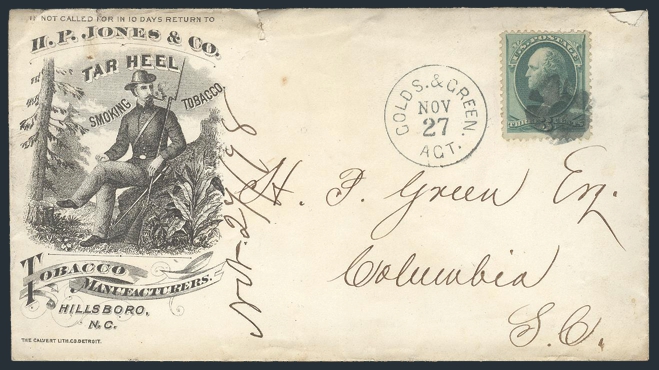 IF NOT CALLED FOR IN 10 DAYS RETURN TO
H. P. JONES & CO.
TAR HEEL
SMOKING TOBACCO
TOBACCO
MANUFACTURERS.
HILLSBORO,
N.C.
THE CALVERT LITH. CO. DETROIT.
GOLDS. & GREEN.
NOV
27
AGT.
U.S. POSTAGE
H. F. Green Esq.
Columbia
S.C.